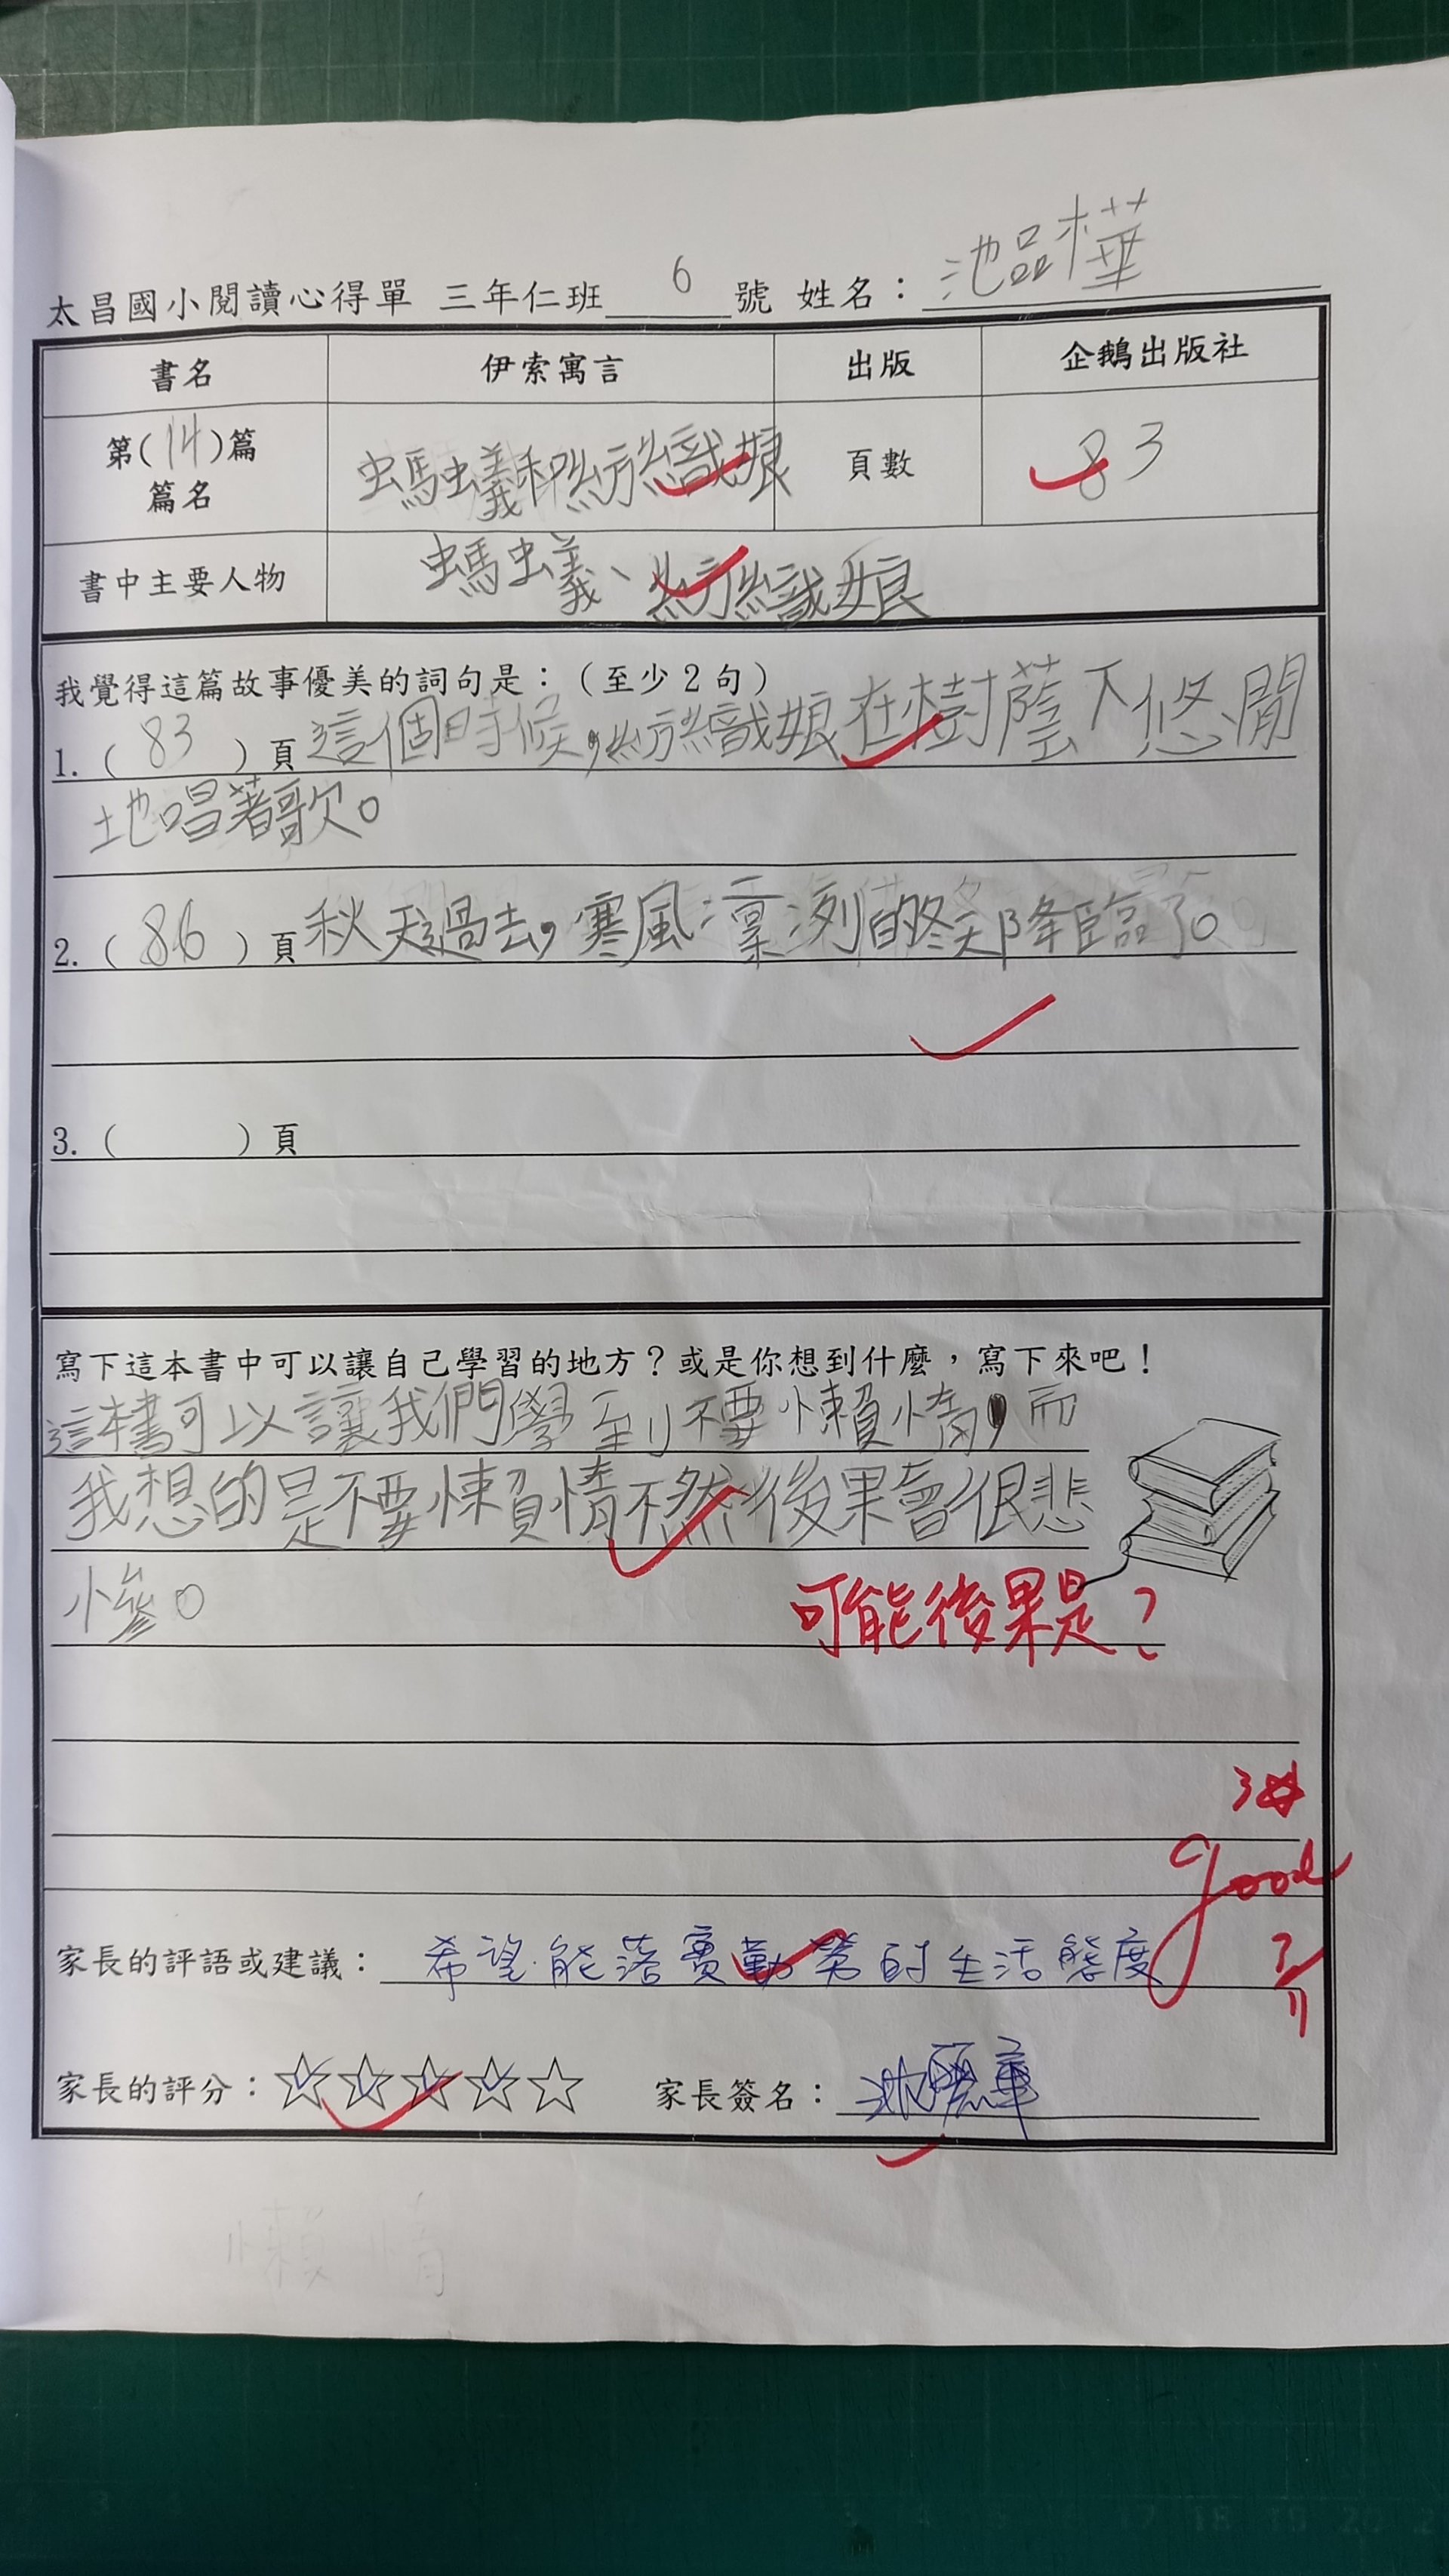 太昌國小閱讀心得單 三年仁班 6 號 姓名：池品樺
書名 伊索寓言 出版 企鵝出版社
第(14)篇 篇名 螞蟻和紡織娘 頁數 83
書中主要人物 螞蟻、紡織娘
我覺得這篇故事優美的詞句是：（至少2句）
1.（83）頁 這個時候，紡織娘在樹蔭下悠閒
地唱著歌。
2.（86）頁 秋天過去，寒風凜冽的冬天降臨了。
3.（ ）頁
寫下這本書中可以讓自己學習的地方？或是你想到什麼，寫下來吧！
這本書可以讓我們學到不要懶惰，而
我想的是不要懶惰不然後果會很悲
慘。
可能後果是？
3☆
good
家長的評語或建議：希望能落實勤勞的生活態度
家長的評分：☆☆☆☆☆ 家長簽名：